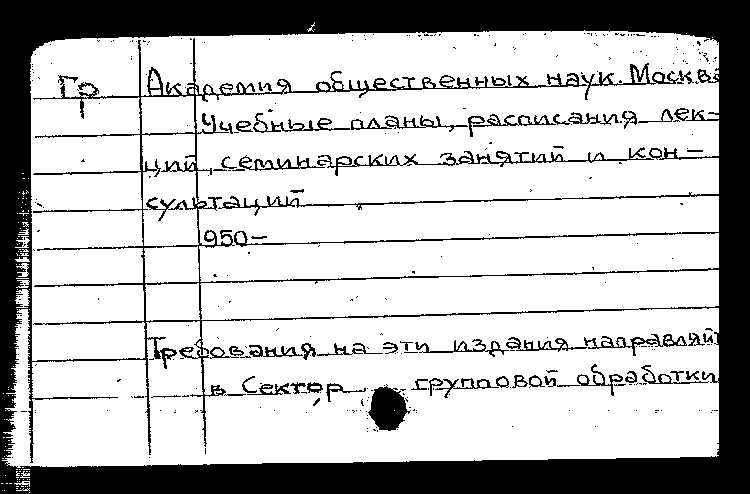 Гр Академия общественных наук. Москва
Учебные планы, расписания лек-
ций, семинарских занятий и кон-
сультаций
950-
Требования на эти издания направляйт
в Сектор групповой обработки